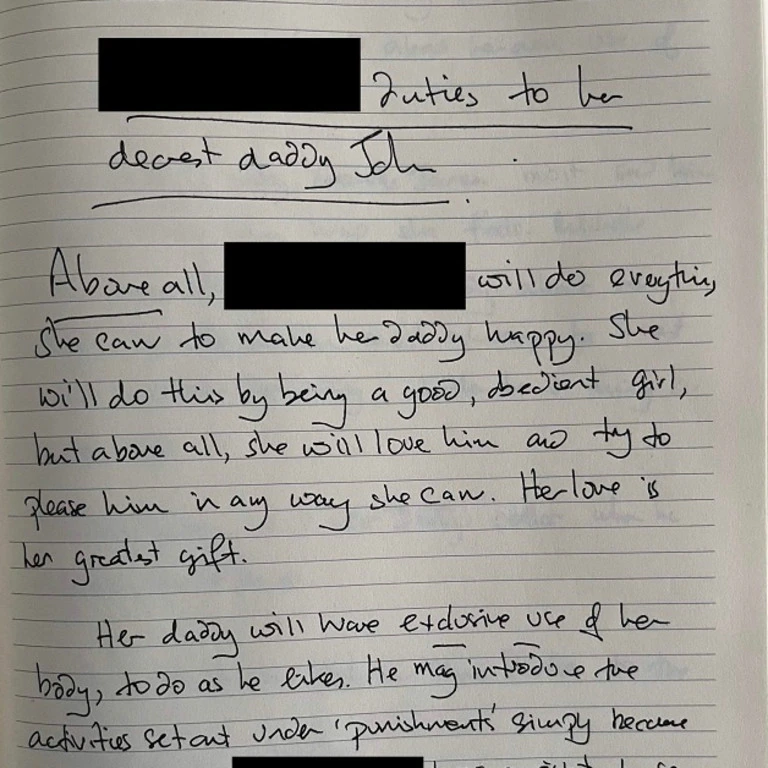 duties to her
dearest daddy John.
Above all, will do everything
she can to make her daddy happy. She
will do this by being a good, obedient girl,
but above all, she will love him and try to
please him in any way she can. Her love is
her greatest gift.
Her daddy will have exclusive use of her
body, to do as he likes. He may introduce the
activities set out under 'punishments' simply because